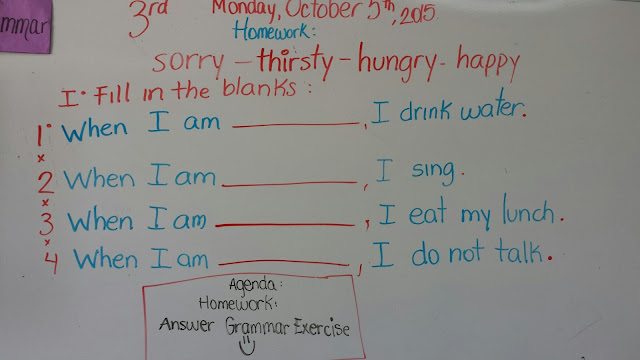 mmar
3rd Monday, October 5th, 2015
Homework:
sorry - thirsty - hungry - happy
I. Fill in the blanks:
1. When I am __________, I drink water.
x
2 When I am __________, I sing.
x
3 When I am __________, I eat my lunch.
x
4 When I am __________, I do not talk.
Agenda:
Homework:
Answer Grammar Exercise